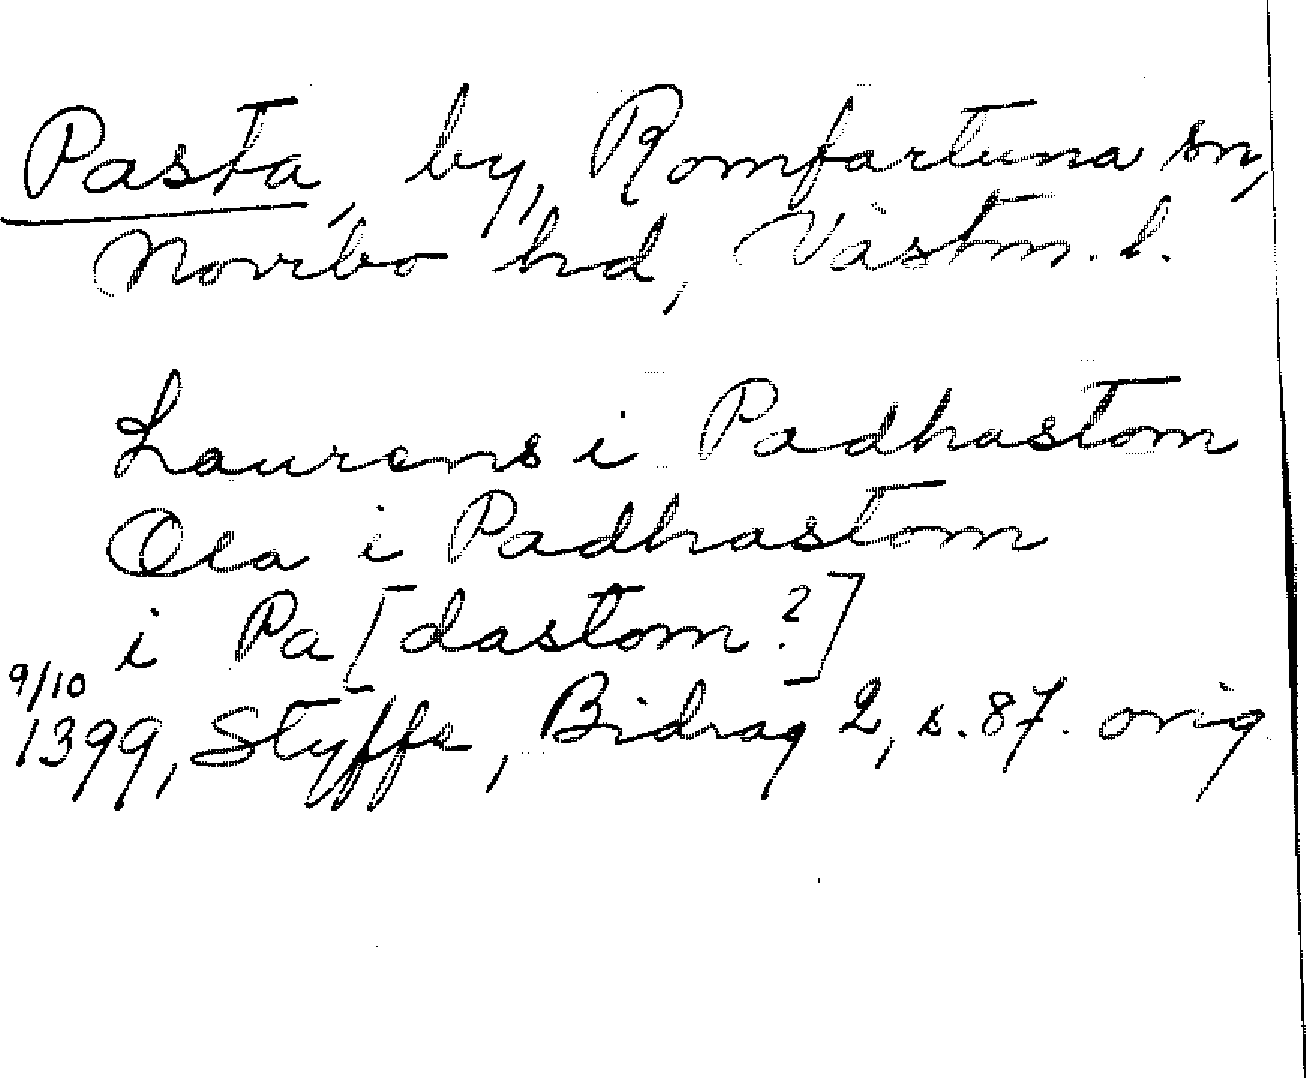 Pasta, by, Romfartuna sn,
Norrbo hd, Västm. l.
Laurens i Padhastom
Ola i Padhastom
i Pa[dastom?]
9/10
1399, Styffe, Bidrag 2, s. 87. orig